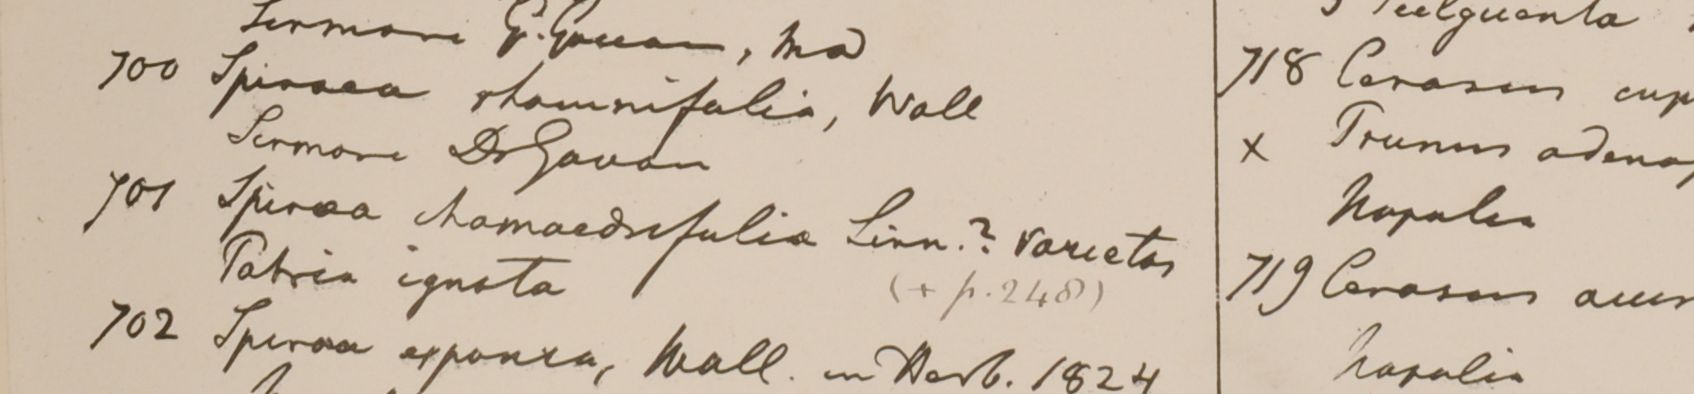 Sirmore G. Govan, Md
700 Spiraea rhamnifolia, Wall
Sirmore Dr Govan
701 Spiraea chamaedrifolia Linn.? varietas
Patria ignota
(+ p. 248)
702 Spiraea expansa, Wall. in Herb. 1824
718 Cerasus cup
x Prunus adeno
Napalia
719 Cerasus
Napalia